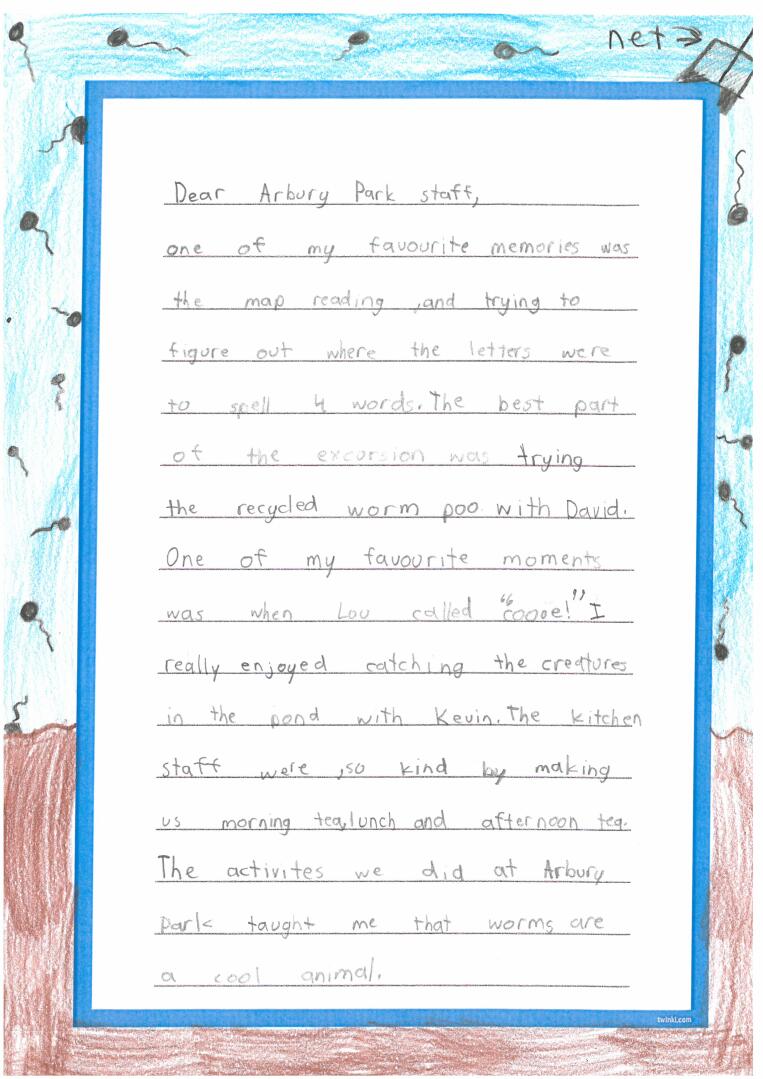 net →
Dear Arbury Park staff,
one of my favourite memories was
the map reading ,and trying to
figure out where the letters were
to spell 4 words. The best part
of the excursion was trying
the recycled worm poo with David.
One of my favourite moments
was when Lou called "coooe!" I
really enjoyed catching the creatures
in the pond with Kevin. The kitchen
staff were ,so kind by making
us morning tea, lunch and afternoon tea.
The activites we did at Arbury
Park taught me that worms are
a cool animal.
twinkl.com